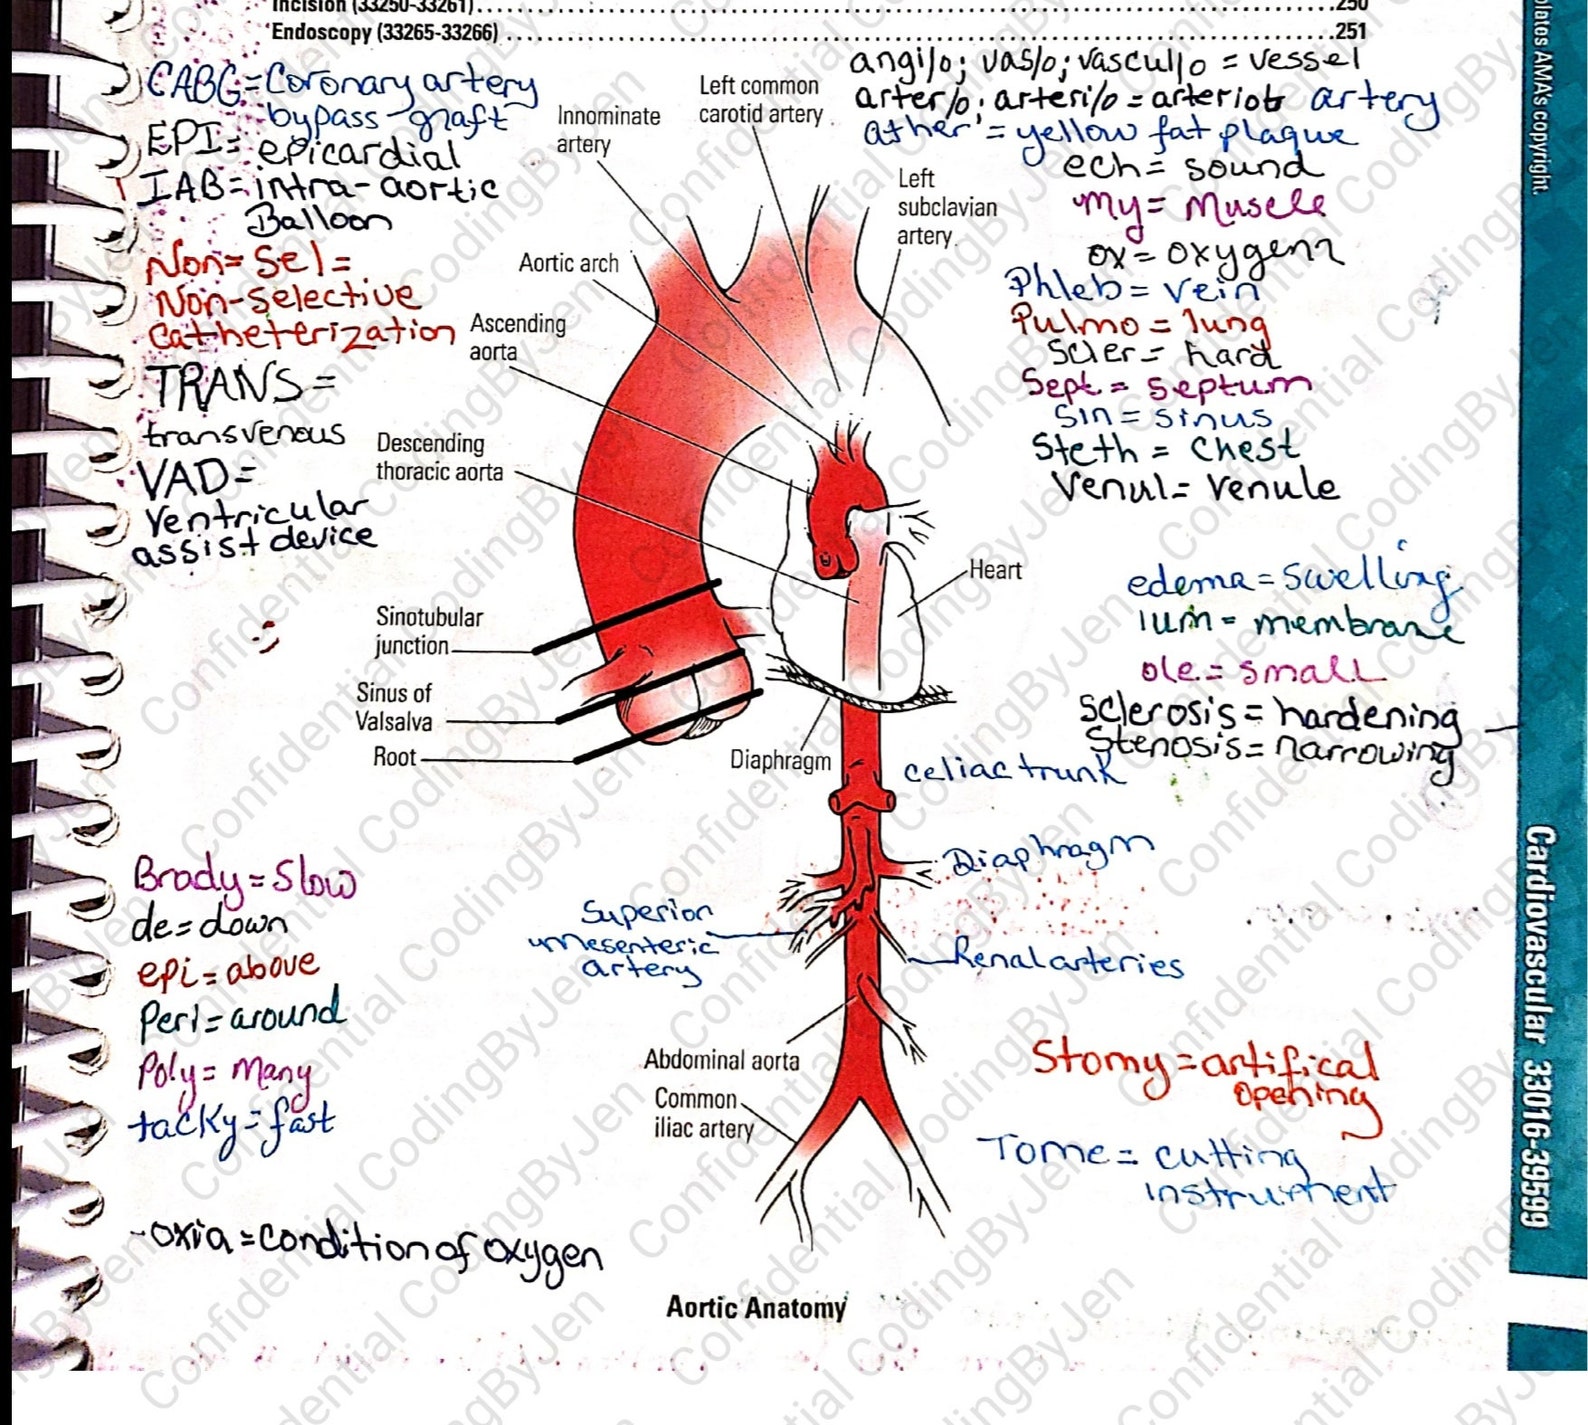 Incision (33250-33261)........250
Endoscopy (33265-33266)........251
CABG=Coronary artery
bypass-graft
EPI= epicardial
IAB=intra-aortic
Balloon
Non=Sel=
Non-selective
Catheterization
TRANS=
transvenous
VAD=
Ventricular
assist device
angi/o; vas/o; vascul/o = vessel
arter/o; arteri/o = arteriob artery
ather = yellow fat plaque
ech= sound
my= Muscle
ox= oxygen
Phleb= vein
Pulmo = lung
Scler= hard
Sept= septum
Sin = sinus
Steth = Chest
Venul= Venule
edema=swelling
ium= membrane
ole= small
Sclerosis= hardening
Stenosis= narrowing
Left common
carotid artery
Innominate
artery
Left
subclavian
artery
Aortic arch
Ascending
aorta
Descending
thoracic aorta
Heart
Sinotubular
junction
Sinus of
Valsalva
Root
Diaphragm
celiac trunk
Diaphragm
Superior
Mesenteric
artery
Renal arteries
Abdominal aorta
Common
iliac artery
Brady=Slow
de=down
epi=above
Peri=around
Poly= Many
tacky=fast
-oxia=condition of oxygen
Stomy=artifical
opening
Tome= cutting
instrument
Aortic Anatomy
AMA's copyright.
Cardiovascular 33016-39599
Confidential CodingByJen